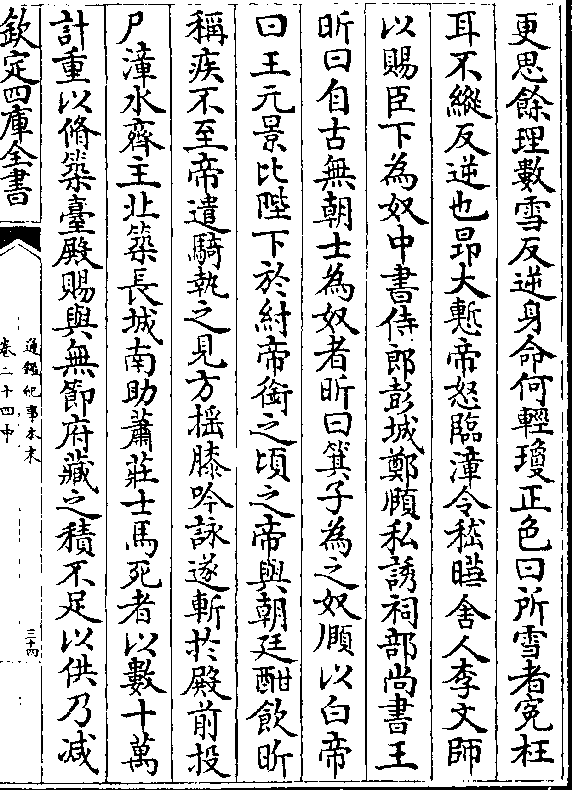 更思餘理數雪反逆身命何輕瓊正色曰所雪者寃枉
耳不縱反逆也昂大慙帝怒臨漳令嵇曄舍人李文師
以賜臣下為奴中書侍郎彭城鄭頤私誘祠部尚書王
昕曰自古無朝士為奴者昕曰箕子為之奴頤以白帝
曰王元景比陛下於紂帝銜之頃之帝與朝廷酣飲昕
稱疾不至帝遣騎執之見方揺膝吟詠遂斬於殿前投
尸漳水齊主北築長城南助蕭莊士馬死者以數十萬
計重以脩築臺殿賜與無節府藏之積不足以供乃減
欽定四庫全書
通鑑紀事本末
卷二十四中
三十四